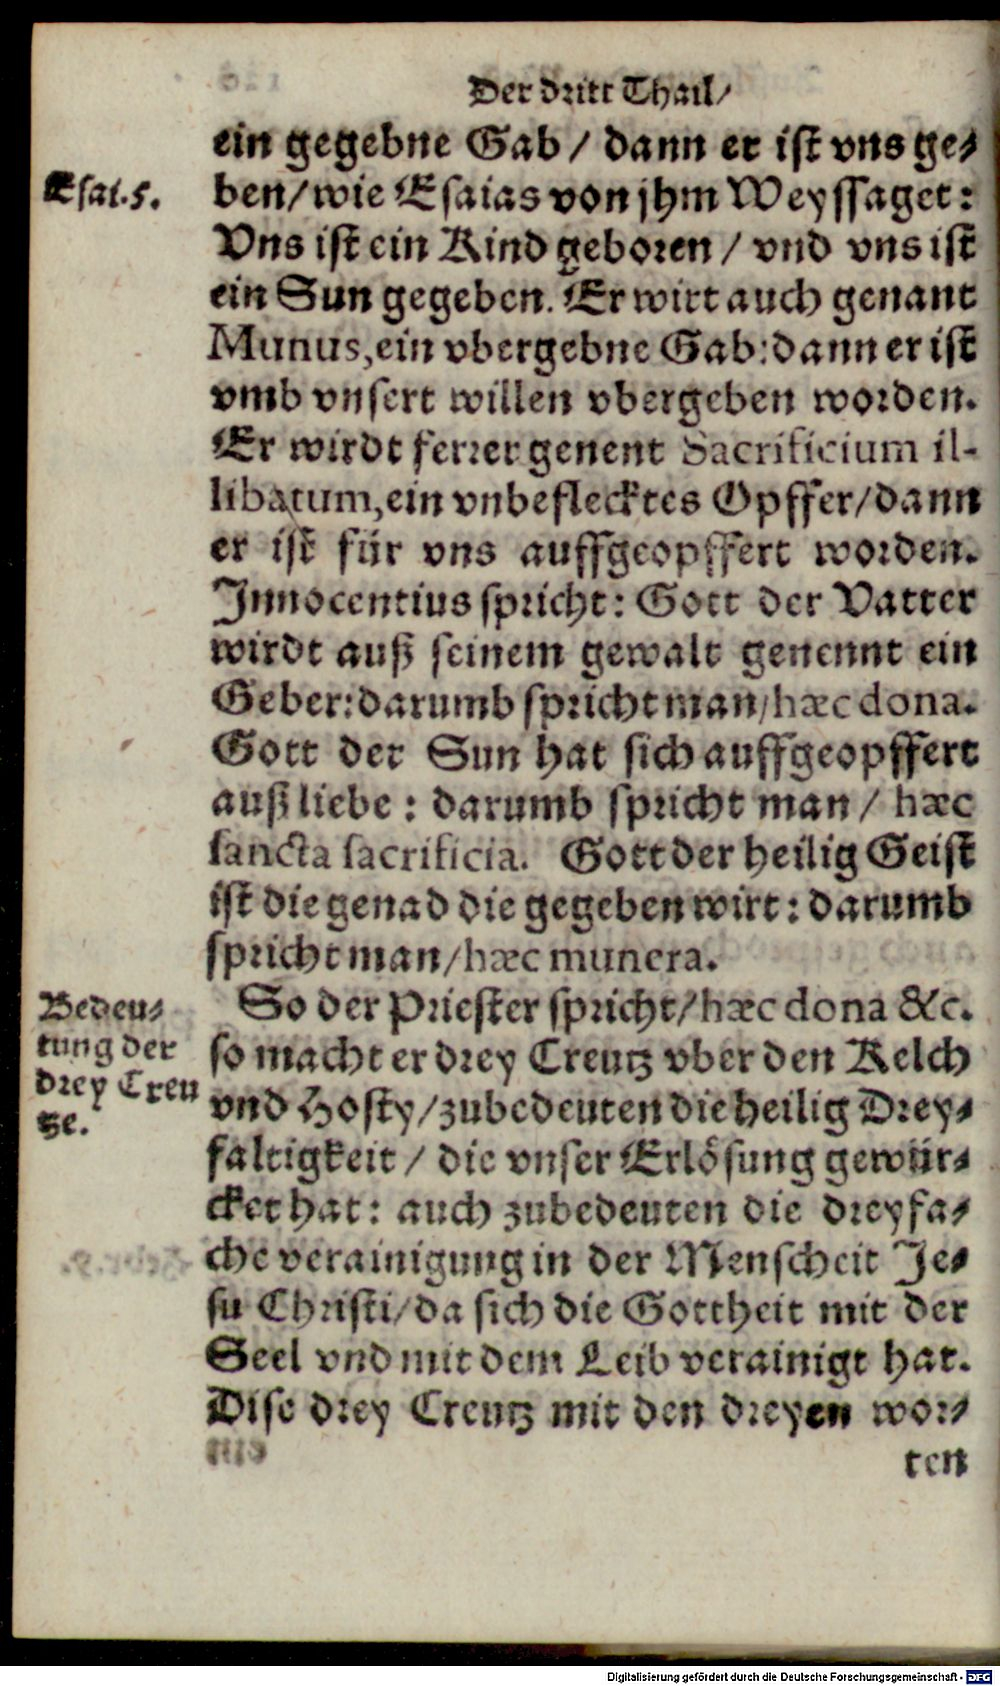 Der dritt Thail/
ein gegebne Gab / dann er ist vns ge-
Esai.5.
ben/wie Esaias von jhm Weyssaget:
Vns ist ein Kind geboren / vnd vns ist
ein Sun gegeben. Er wirt auch genant
Munus, ein vbergebne Gab: dann er ist
vmb vnsert willen vbergeben worden.
Er wirdt ferrer genent Sacrificium il-
libatum, ein vnbeflecktes Opffer/dann
er ist für vns auffgeopffert worden.
Innocentius spricht: Gott der Vatter
wirdt auß seinem gewalt genennt ein
Geber: darumb spricht man/hæc dona.
Gott der Sun hat sich auffgeopffert
auß liebe: darumb spricht man / hæc
sancta sacrificia. Gott der heilig Geist
ist die genad die gegeben wirt: darumb
spricht man/hæc munera.
Bedeu-
tung der
drey Creu
tze.
So der Priester spricht/hæc dona &c.
so macht er drey Creutz vber den Kelch
vnd Hosty/zubedeuten die heilig Drey-
faltigkeit / die vnser Erlösung gewür-
cket hat: auch zubedeuten die dreyfa-
che verainigung in der Menscheit Je-
su Christi/da sich die Gottheit mit der
Seel vnd mit dem Leib verainigt hat.
Dise drey Creutz mit den dreyen wor-
ten
Digitalisierung gefördert durch die Deutsche Forschungsgemeinschaft - DFG